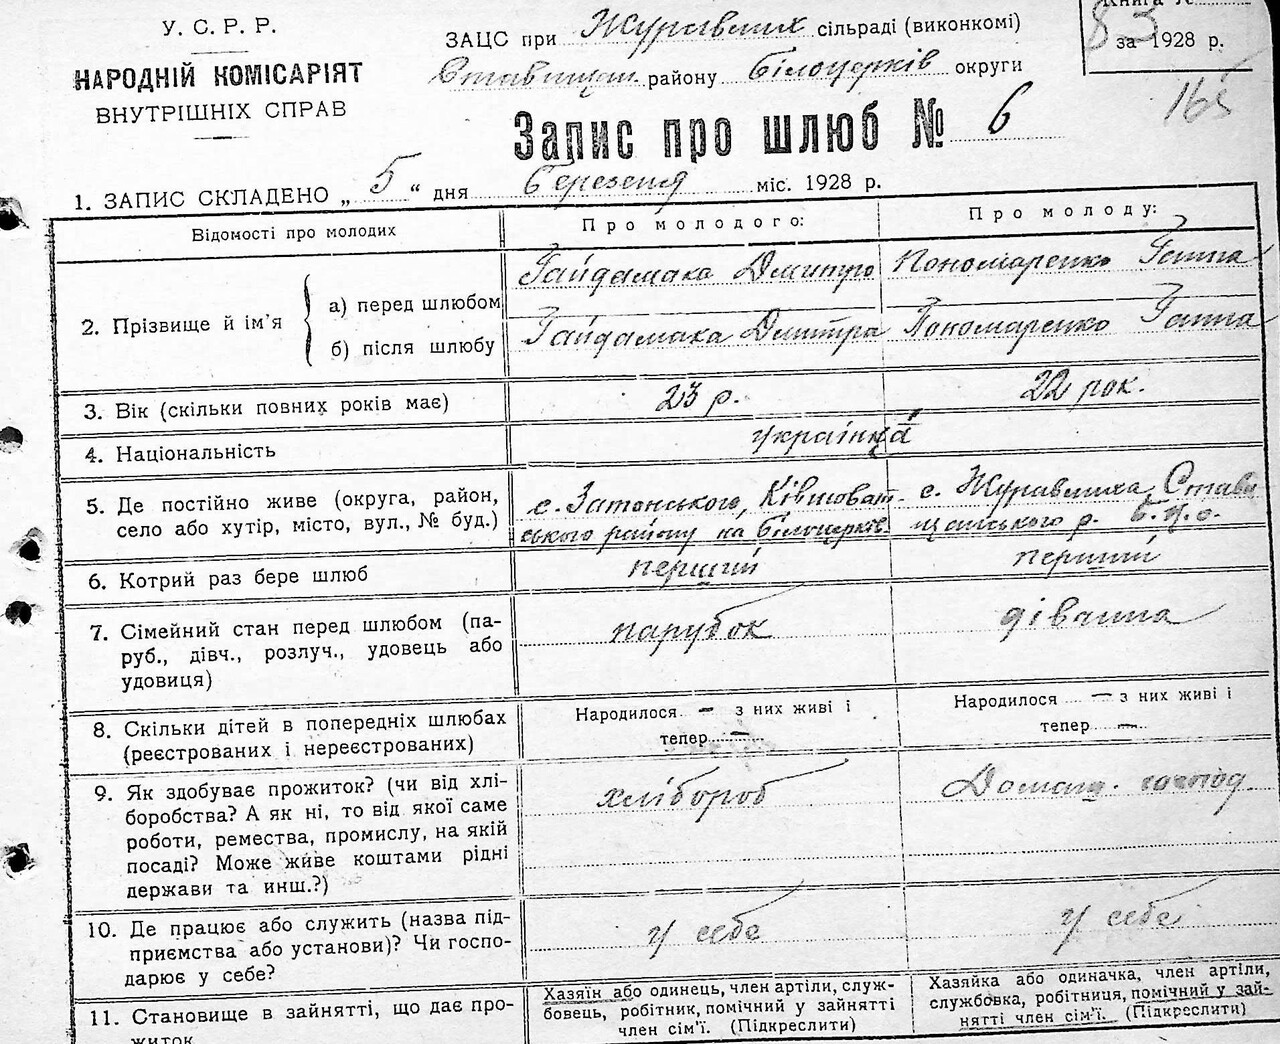 У. С. Р. Р.
НАРОДНІЙ КОМІСАРІЯТ
ВНУТРІШНІХ СПРАВ
ЗАЦС при Журавлих сільраді (виконкомі)
Ставищан. району Білоцерків округи
Книга №
83
за 1928 р.
Запис про шлюб № 6
1. ЗАПИС СКЛАДЕНО „ 5 “ дня березеня міс. 1928 р.
Відомості про молодих
Про молодого:
Про молоду:
2. Прізвище й ім’я
а) перед шлюбом
Гайдамака Дмитро
Пономаренко Ганна
б) після шлюбу
Гайдамака Дмитра
Пономаренко Ганна
3. Вік (скільки повних років має)
23 р.
22 рок.
4. Національність
українці
5. Де постійно живе (округа, район,
село або хутір, місто, вул., № буд.)
с. Затонського, Ківшоват-
ського району на Білоцерків.
с. Журавлиха Стави
щанського р. Б.Ц.О.
6. Котрий раз бере шлюб
перший
перший
7. Сімейний стан перед шлюбом (па-
руб., дівч., розлуч., удовець або
удовиця)
парубок
дівчина
8. Скільки дітей в попередніх шлюбах
(реєстрованих і нереєстрованих)
Народилося – з них живі і
тепер –
Народилося – з них живі і
тепер –
9. Як здобуває прожиток? (чи від хлі-
боробства? А як ні, то від якої саме
роботи, ремества, промислу, на якій
посаді? Може живе коштами рідні
держави та инш.?)
хлібороб
Домаш. господ.
10. Де працює або служить (назва під-
приємства або установи)? Чи госпо-
дарює у себе?
у себе
у себе
11. Становище в зайнятті, що дає про-
житок
Хазяїн або одинець, член артіли, служ-
бовець, робітник, помічний у зайнятті
член сім’ї. (Підкреслити)
Хазяйка або одиначка, член артіли,
службовка, робітниця, помічний у зай-
нятті член сім’ї. (Підкреслити)